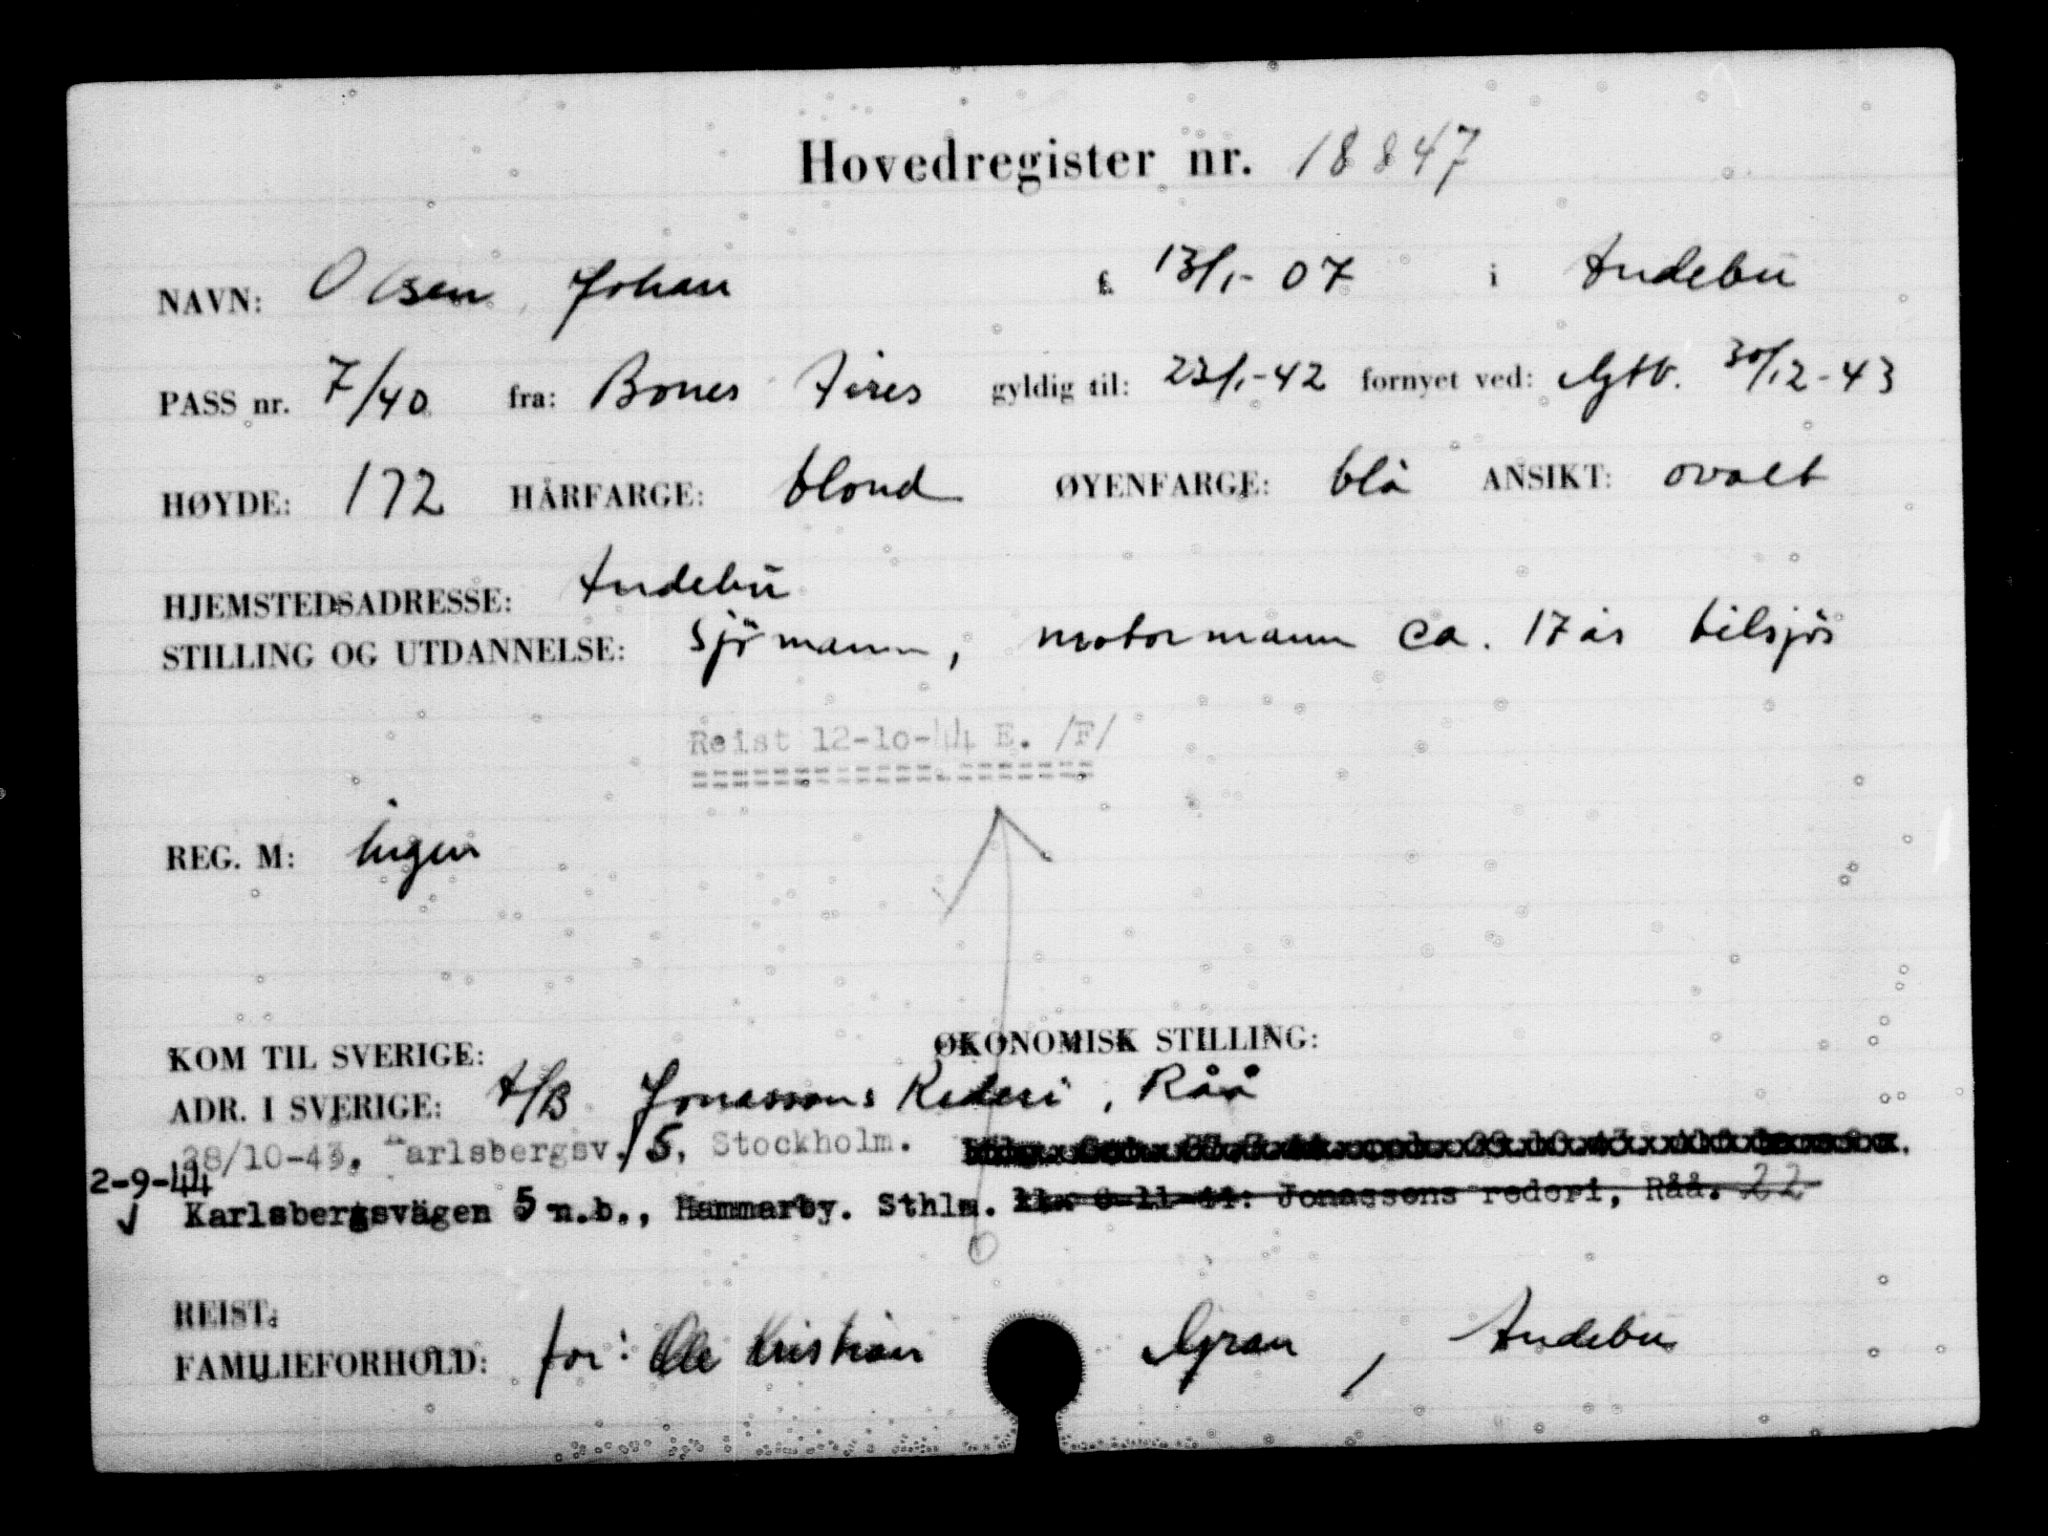 Hovedregister nr. 18847
NAVN: Olsen, Johan f. 13/1-07 i Andebu
PASS nr. 7/40 fra: Bones Aires gyldig til: 23/1-42 fornyet ved: Gtb. 30/12-43
HØYDE: 172 HÅRFARGE: blond ØYENFARGE: blå ANSIKT: ovalt
HJEMSTEDSADRESSE: Andebu
STILLING OG UTDANNELSE: Sjömann, motormann ca. 17 år tilsjös
Reist 12-10-44 E. /F/
REG. M: Ingen
KOM TIL SVERIGE: ØKONOMISK STILLING:
ADR. I SVERIGE: A/B Jonassons Rederi, Råå
28/10-43. Karlsbergsv. 5, Stockholm.
2-9-44
Karlsbergsvägen 5 n.b., Hammarby. Sthlm. Jonassons rederi, Råå. 22
REIST:
FAMILIEFORHOLD: for: Ole Kristian Gran, Andebu